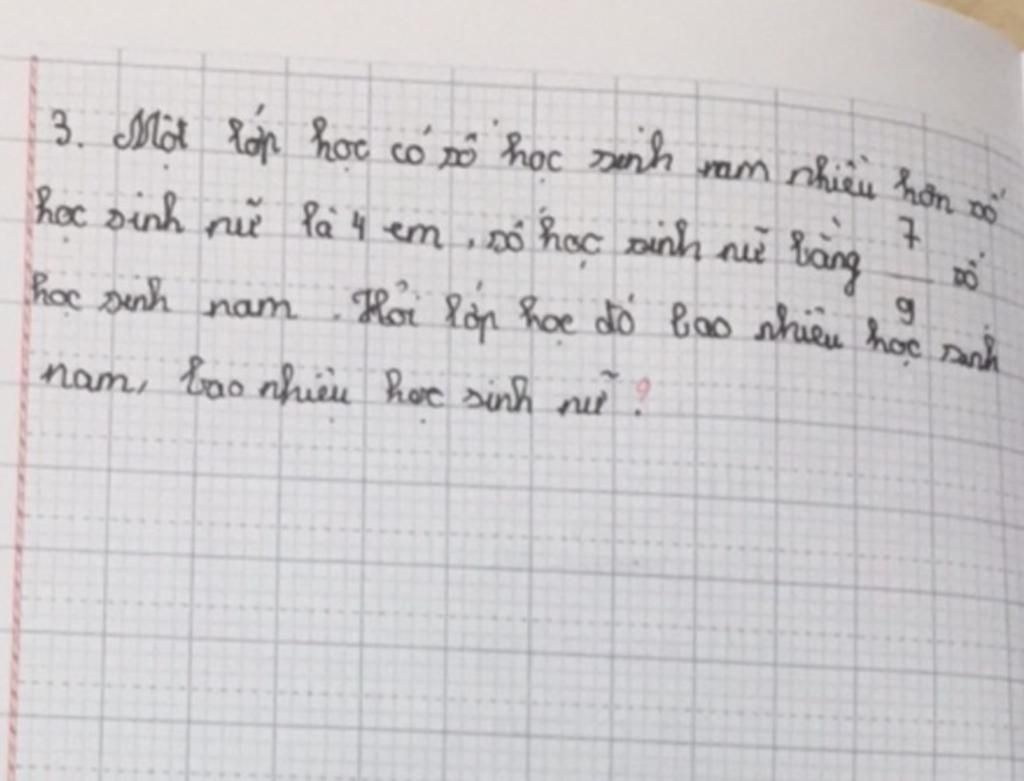 3. Một lớp học có số học sinh nam nhiều hơn số
học sinh nữ là 4 em, số học sinh nữ bằng 7/9 số
học sinh nam. Hỏi lớp học đó bao nhiêu học sinh
nam, bao nhiêu học sinh nữ?